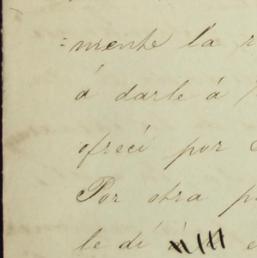 =mente la
á darle á
ofrecí por
Por otra
le dí